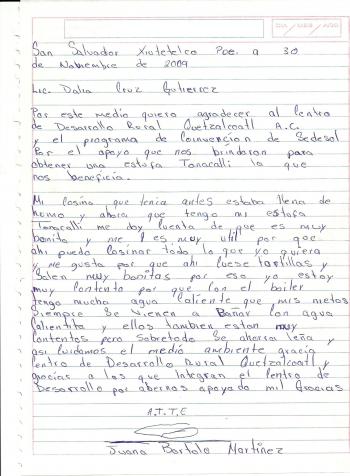 DIA / MES / AÑO
San Salvador Xiutetelco Pue. a 30
de Noviembre de 2009
Lic. Dalia Cruz Gutierrez
Por este medio quiero agradecer al Centro
de Desarrollo Rural Quetzalcoatl A.C.
y el programa de Coinvencion de Sedesol
Por el apoyo que nos brindaron para
obtener una estufa Tonacalli la que
nos beneficia.
Mi cosina que tenia antes estaba llena de
humo y ahora que tengo mi estofa
Tonacalli me doy cuenta de que es muy
bonita y me es muy util por que
ahi puedo cosinar todo lo que yo quiera
y me gusta por que ahi cuese tortillas y
Salen muy bonitas por eso yo estoy
muy contenta por que con el boiler
tengo mucha agua caliente que mis nietos
siempre se vienen a Bañar con agua
Calientita y ellos tambien estan muy
contentos pero sobretodo se ahorra leña y
asi cuidamos el medio ambiente gracia
Centro de Desarrollo Rural Quetzalcoatl y
gracias a los que integran el Centro de
Desarrollo por abernos apoyado mil Gracias
A.T.T.E
Juana Bartolo Martinez